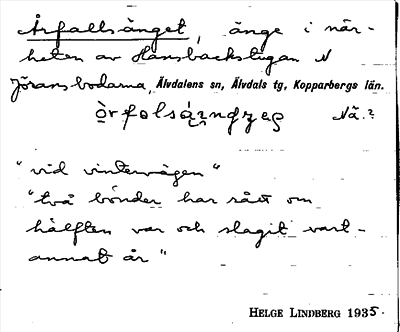 Årfallsänget, änge i när-
heten av Hansbackstugan N
Jöransbodarna, Älvdalens sn, Älvdals tg, Kopparbergs län.
Nä. ?
"vid vintervägen"
"två bönder har rätt om
hälften var och slagit vart-
annat år"
HELGE LINDBERG 1935.